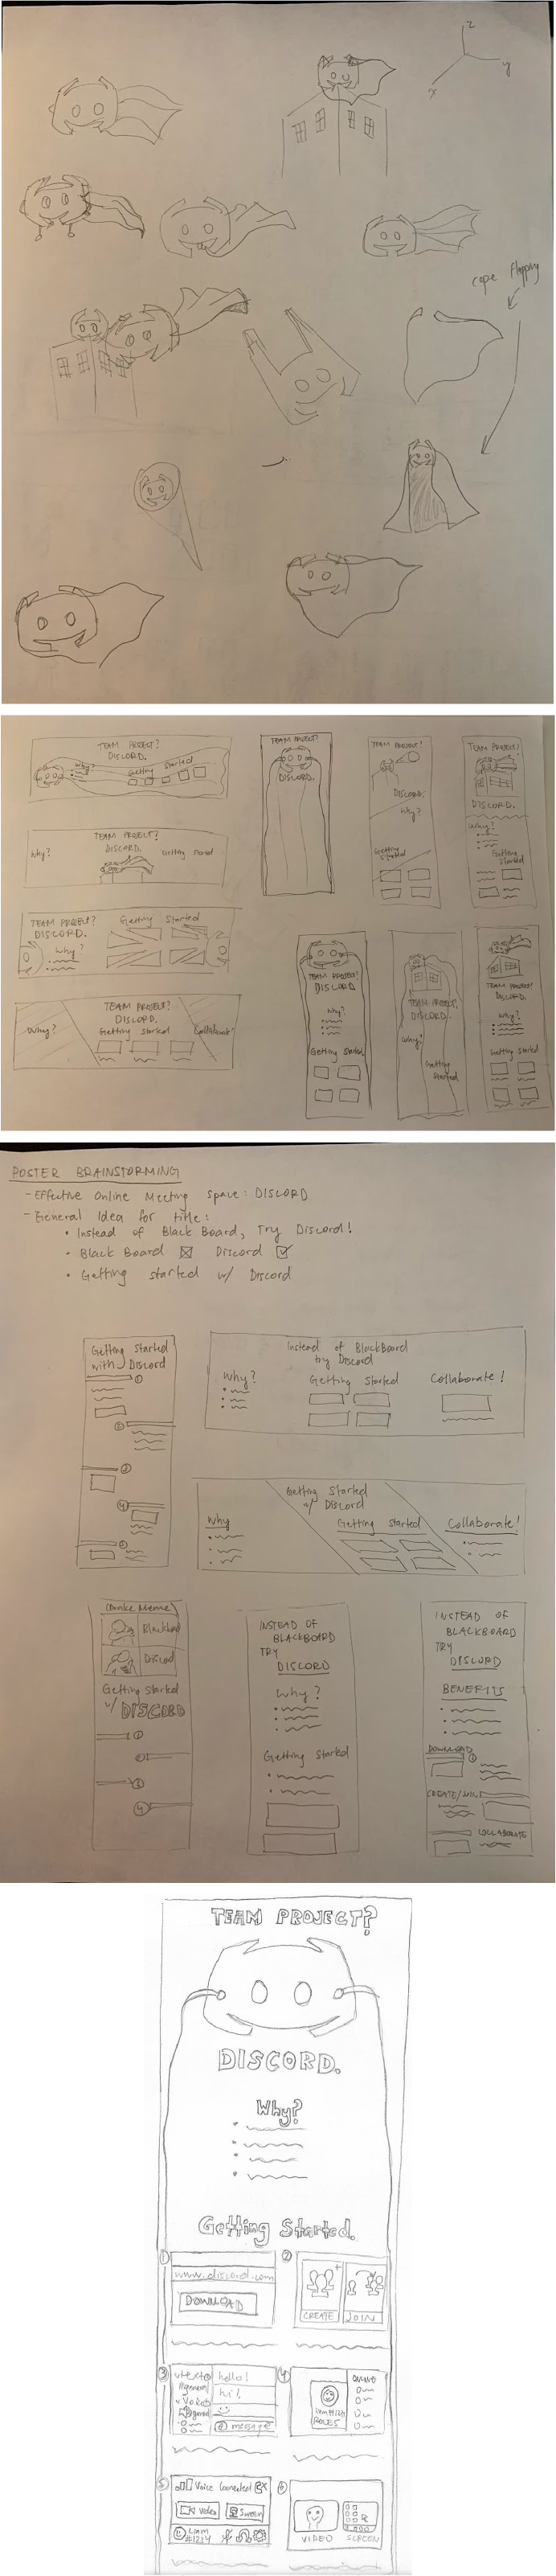 z
y
x
cape flapping
TEAM PROJECT?
DISCORD.
Why?
Getting Started
TEAM PROJECT?
DISCORD.
Why?
Getting Started
TEAM PROJECT?
DISCORD.
Why?
Getting Started
TEAM PROJECT?
DISCORD.
Why?
Getting Started
Collaborate!
TEAM PROJECT?
DISCORD.
TEAM PROJECT?
DISCORD.
Why?
Getting Started
TEAM PROJECT?
DISCORD.
Why?
Getting Started
TEAM PROJECT?
DISCORD.
Why?
Getting Started
TEAM PROJECT?
DISCORD.
Why?
Getting Started
TEAM PROJECT?
DISCORD.
Why?
Getting Started
POSTER BRAINSTORMING
- Effective Online Meeting Space: DISCORD
- General Idea for title:
• Instead of Black Board, Try Discord!
• Black Board ☒ Discord ☑
• Getting started w/ Discord
Getting Started
with Discord
1
2
3
4
5
Instead of BlackBoard
try Discord
Why?
Getting Started
Collaborate!
Getting Started
w/ Discord
Why
Getting Started
Collaborate!
(Drake Meme)
Blackboard
Discord
Getting Started
w/ DISCORD
1
2
3
4
INSTEAD OF
BLACKBOARD
TRY
DISCORD
Why?
Getting Started
INSTEAD OF
BLACKBOARD
TRY
DISCORD
BENEFITS
DOWNLOAD
1
CREATE/JOIN
COLLABORATE
TEAM PROJECT?
DISCORD.
Why?
Getting Started.
1
www.discord.com
DOWNLOAD
2
CREATE
JOIN
3
hello!
hi!
message
4
ROLES
5
Voice Connected
Video
Screen
Liam
#1214
6
VIDEO
SCREEN